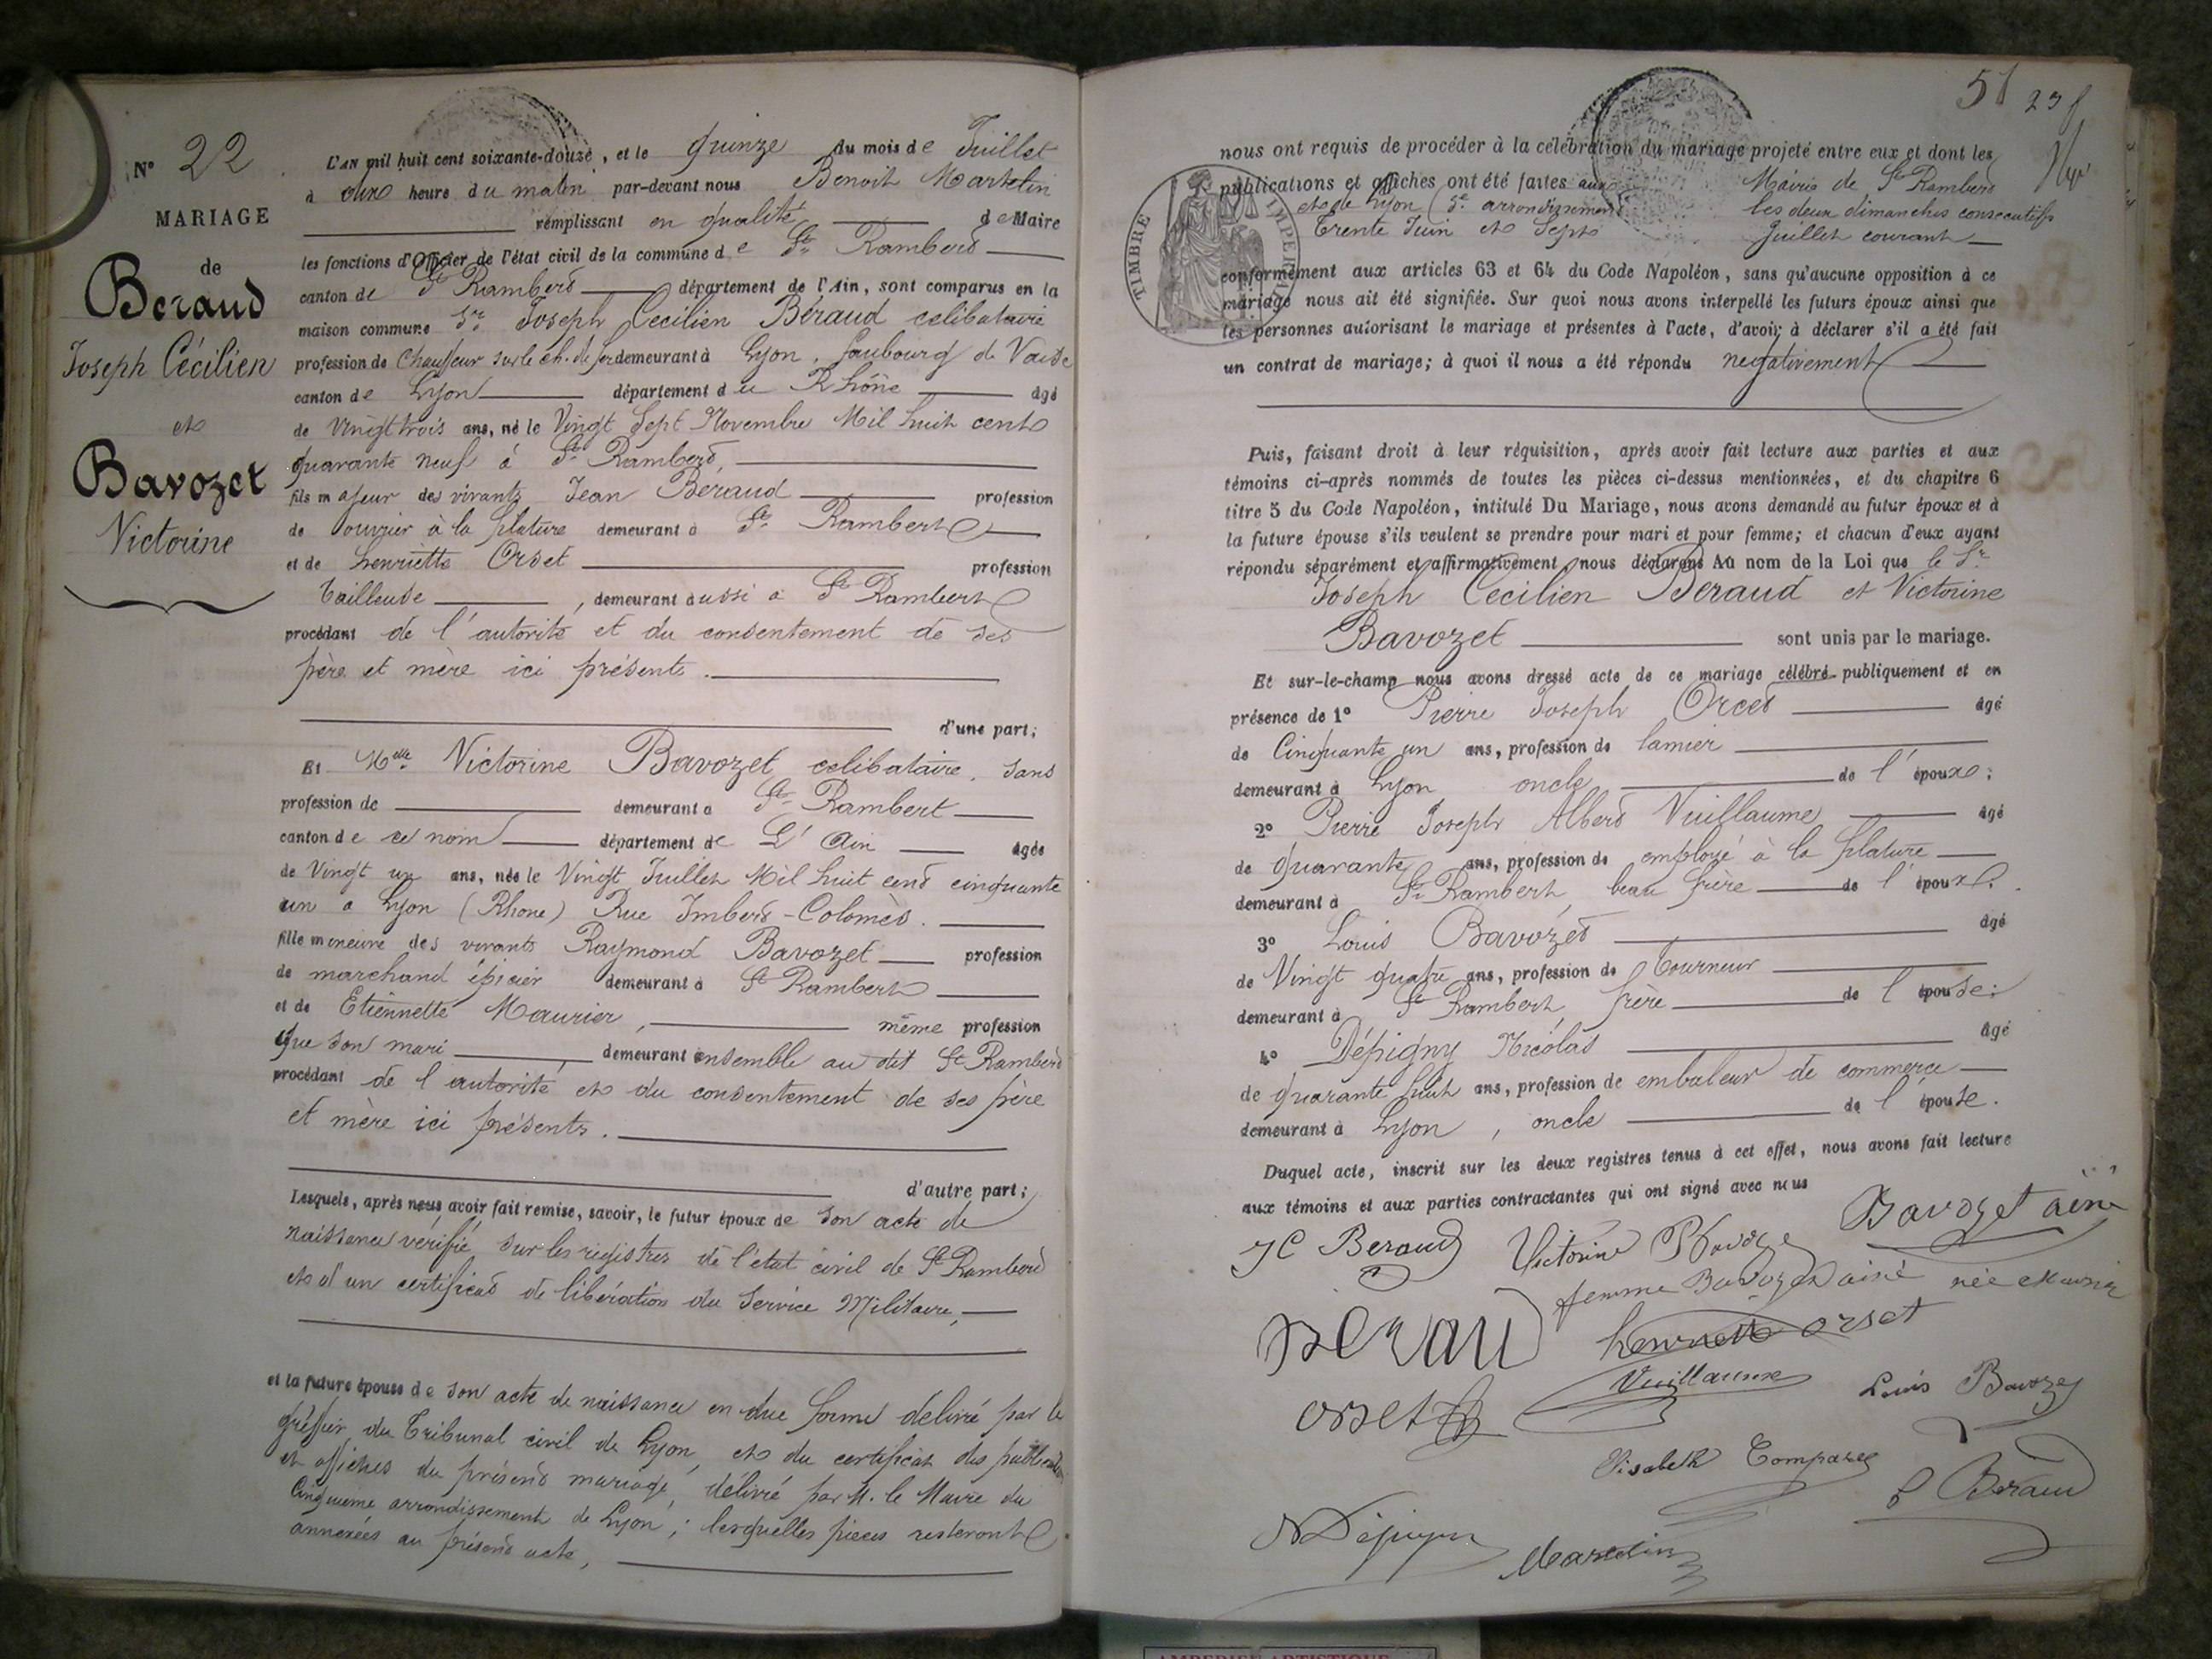 N° 22
MARIAGE
de
Beraud
Joseph Cécilien
et
Bavozet
Victorine
L'AN mil huit cent soixante-douze, et le quinze du mois de Juillet
à onze heure du matin par-devant nous Benoit Martelin
remplissant en qualité de Maire
les fonctions d'Officier de l'état civil de la commune de St Rambert
canton de St Rambert département de l'Ain, sont comparus en la
maison commune Sr Joseph Cecilien Béraud celibataire
profession de Chauffeur sur le ch. de fer demeurant à Lyon, faubourg de Vaise
canton de Lyon département du Rhône âgé
de Vingt trois ans, né le Vingt Sept Novembre Mil huit cent
quarante neuf à St Rambert,
fils majeur des vivants Jean Beraud profession
de ouvrier à la filature demeurant à St Rambert
et de henriette Orset profession
tailleuse, demeurant aussi à St Rambert
procédant de l'autorité et du consentement de ses
père et mère ici présents.
d'une part;
Et Melle Victorine Bavozet celibataire, sans
profession de demeurant à St Rambert
canton de ce nom département de L'Ain âgée
de Vingt un ans, née le Vingt Juillet Mil huit cent cinquante
un a Lyon (Rhone) Rue Imbert-Colomès.
fille mineure des vivants Raymond Bavozet profession
de marchand épicier demeurant à St Rambert
et de Etiennette Maurier, même profession
que son mari, demeurant ensemble au dit St Rambert
procédant de l'autorité et du consentement de ses père
et mère ici présents.
d'autre part;
Lesquels, après nous avoir fait remise, savoir, le futur époux de son acte de
naissance vérifié sur les registres de l'état civil de St Rambert
et d'un certificat de libération du Service Militaire,
et la future épouse de son acte de naissance en due forme delivré par le
greffier du Tribunal civil de Lyon, et du certificat des publications
et affiches du présent mariage, délivré par M. le Maire du
Cinquième arrondissement de Lyon; lesquelles pièces resteront
annexées au présent acte,
51
nous ont requis de procéder à la célébration du mariage projeté entre eux et dont les
publications et affiches ont été faites aux Mairie de St Rambert
et de Lyon (5e arrondissement les deux dimanches consecutifs
Trente Juin et Sept Juillet courant
TIMBRE IMPERIAL
conformément aux articles 63 et 64 du Code Napoléon, sans qu'aucune opposition à ce
mariage nous ait été signifiée. Sur quoi nous avons interpellé les futurs époux ainsi que
les personnes autorisant le mariage et présentes à l'acte, d'avoir à déclarer s'il a été fait
un contrat de mariage; à quoi il nous a été répondu negativement
Puis, faisant droit à leur réquisition, après avoir fait lecture aux parties et aux
témoins ci-après nommés de toutes les pièces ci-dessus mentionnées, et du chapitre 6
titre 5 du Code Napoléon, intitulé Du Mariage, nous avons demandé au futur époux et à
la future épouse s'ils veulent se prendre pour mari et pour femme; et chacun d'eux ayant
répondu séparément et affirmativement, nous déclarons Au nom de la Loi que le Sr
Joseph Cecilien Beraud et Victorine
Bavozet sont unis par le mariage.
Et sur-le-champ nous avons dressé acte de ce mariage célébré publiquement et en
présence de 1° Pierre Joseph Orcet âgé
de Cinquante un ans, profession de lamier
demeurant à Lyon oncle de l'époux;
2° Pierre Joseph Albert Vuillaume âgé
de quarante ans, profession de employé à la filature
demeurant à St Rambert, beau frère de l'époux.
3° Louis Bavozet âgé
de Vingt quatre ans, profession de tourneur
demeurant à St Rambert frère de l'épouse;
4° Dépigny Nicolas âgé
de quarante huit ans, profession de embaleur de commerce
demeurant à Lyon, oncle de l'épouse.
Duquel acte, inscrit sur les deux registres tenus à cet effet, nous avons fait lecture
aux témoins et aux parties contractantes qui ont signé avec nous
JC Beraud Victorine Bavozet Bavozet ainé
femme Bavozet ainé née Maurier
Beraud henriette orset
Vuillaume Louis Bavozet
orset
Elisabeth
Béraud
N Dépigny Martelin
AMBERIEU ARTISTIQUE